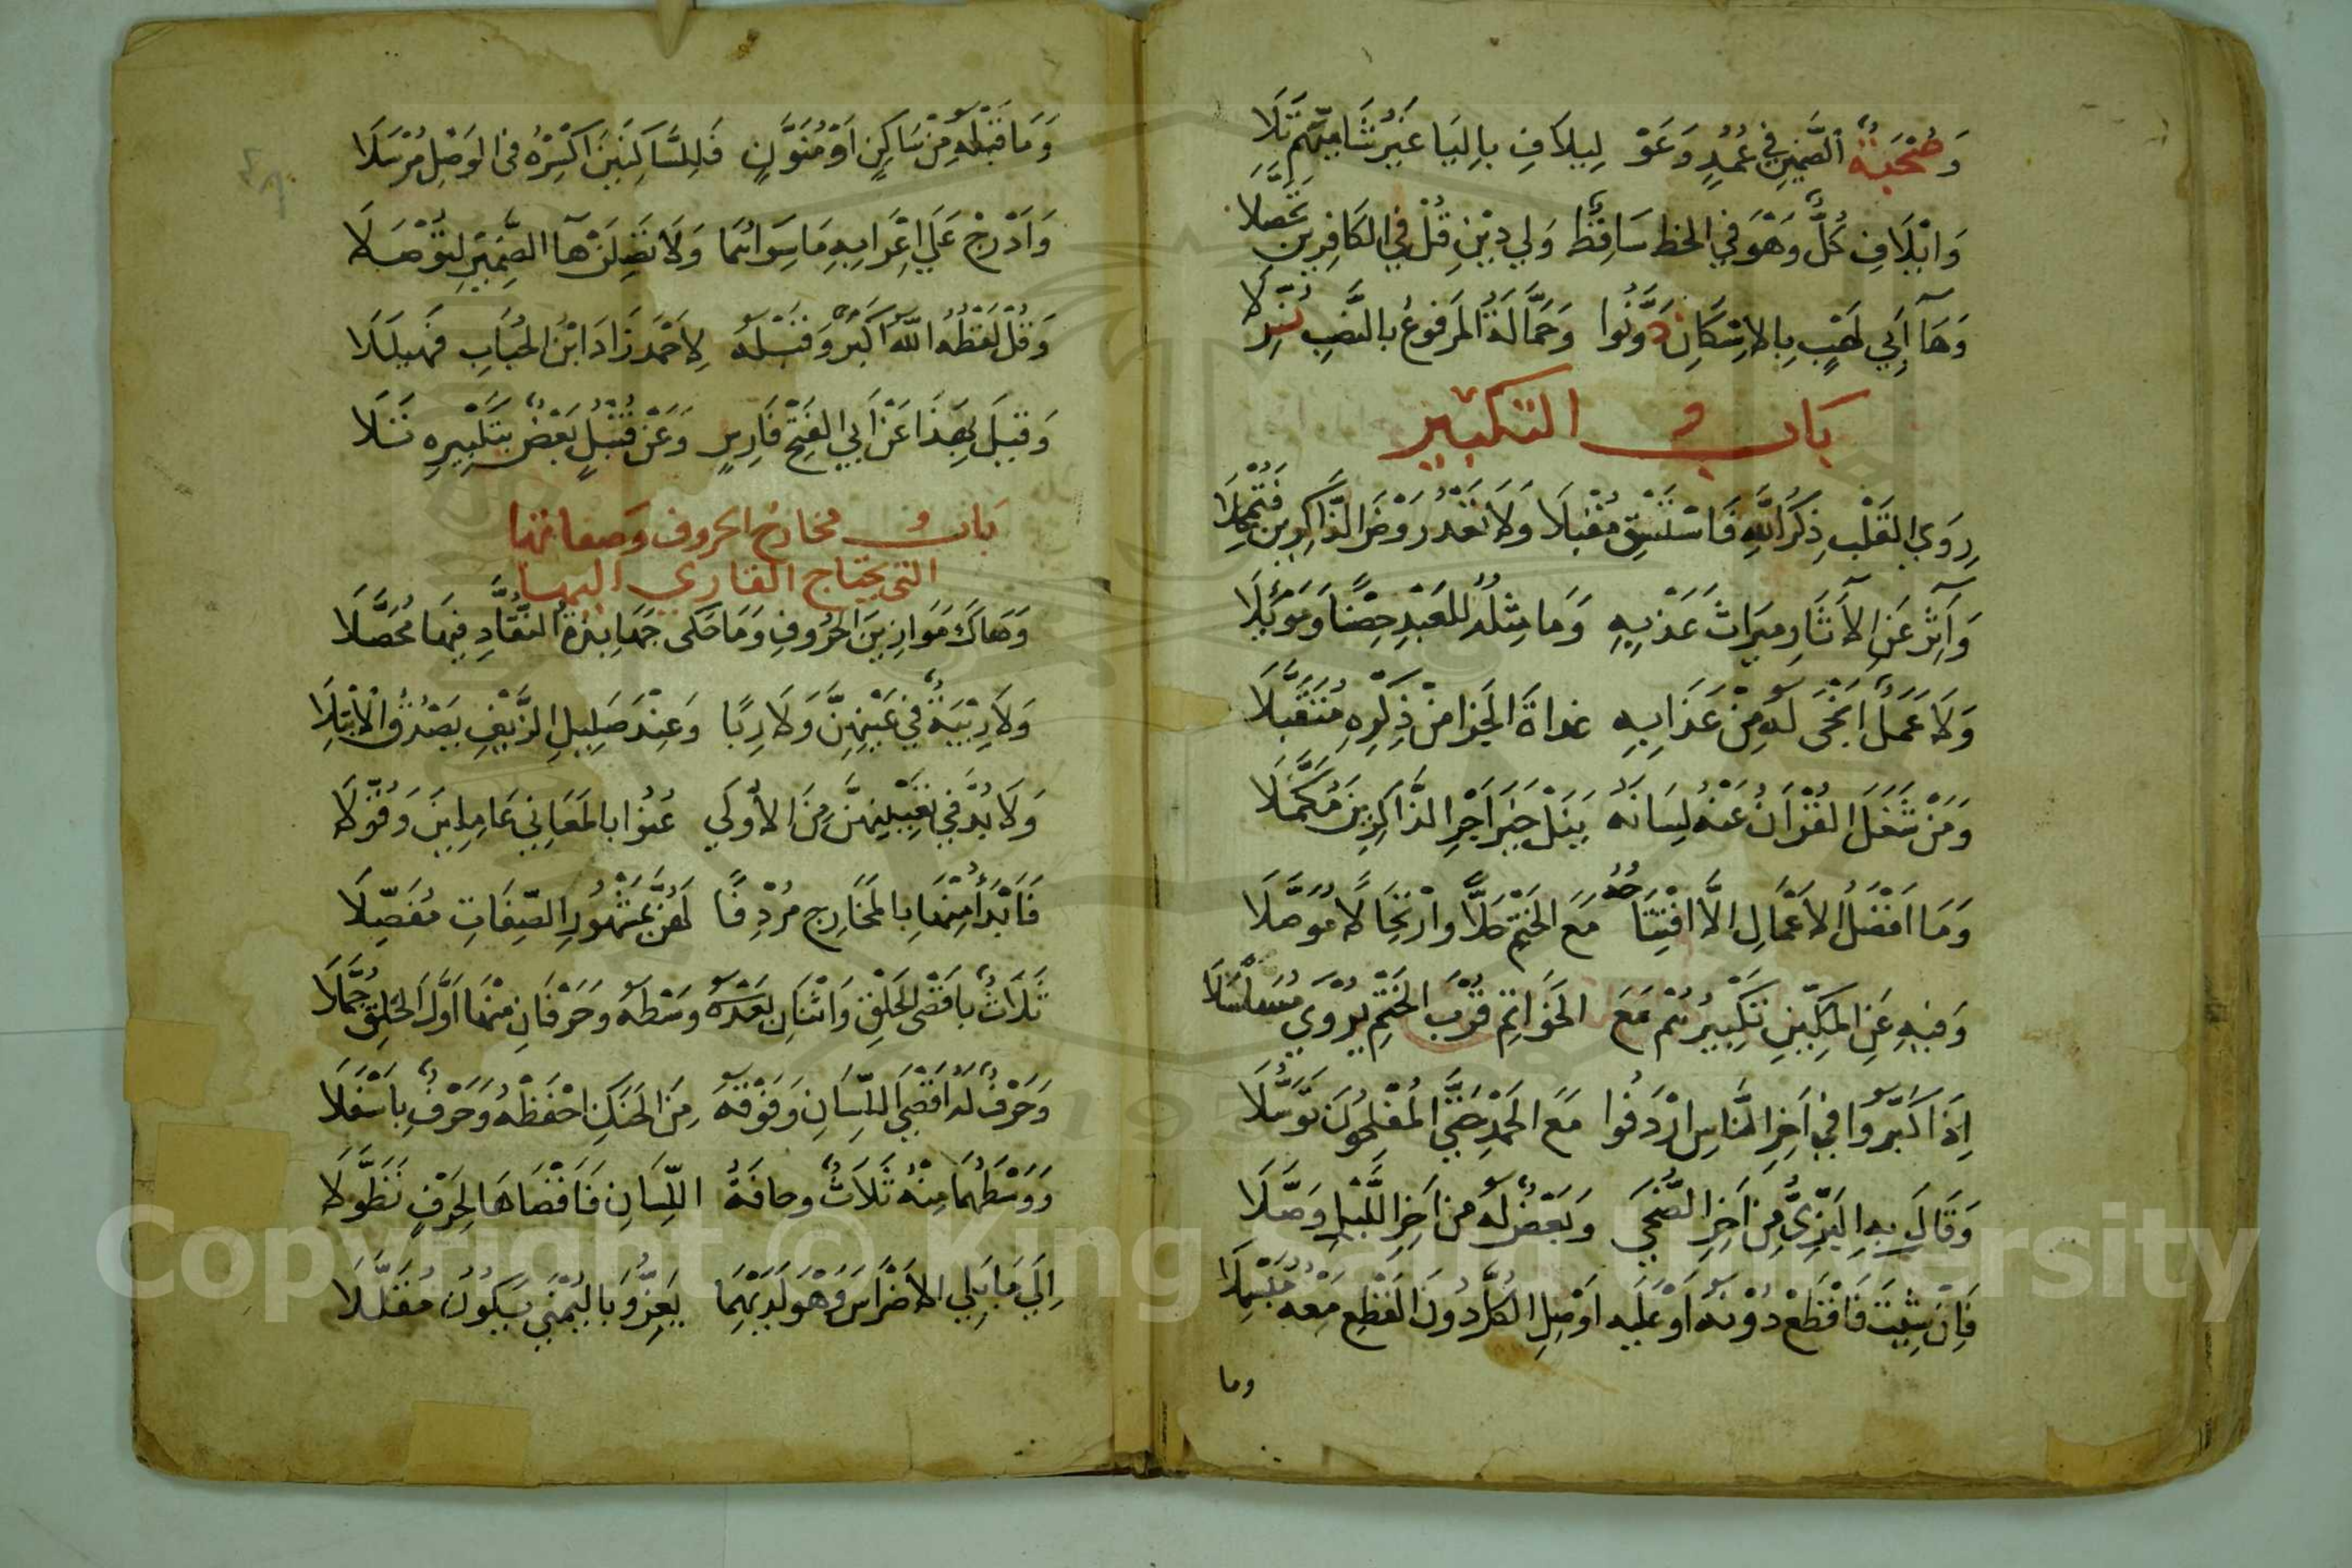 وَصُحْبَةٌ الضَّمَّيْنِ فِي عُمُدٍ وَعَوْا لِيلَافِ بِاليَا غَيْرُ شَامِيِّهِمْ تَلَا
وَاِيْلَافِ كُلٌّ وَهْوَ فِي الخَطِ سَاقِطٌ وَلِي دِيْنِ قُلْ فِي الكَافِرِينَ تَحَصَّلَا
وَهَا أَبِي لَهْبٍ بِالاِسْكَانِ دَوَّنُوا وَحَمَّالَةُ المَرفُوعُ بالنَّصبِ نُزِّلَا
بَاب التكبير
رِوَي القَلْبِ ذِكْرُ اللَّهِ فَاسْتَسْقِ مُقْبِلَا وَلَا تَعْدُ رَوْضَ الذَّاكِرِينَ فَتُمْحِلَا
وَآثِرْ عَنِ الآثَارِ مِيرَاثَ عَذْبِهِ وَمَا مِثْلُهُ لِلعَبْدِ حِصْنًا وَمَوْئِلَا
وَلَا عَمَلٌ اَنْجَى لَهُ مِنْ عَذَابِهِ غداةَ الجَزا مِنْ ذِكْرِهِ مُتَقَبَّلَا
وَمَنْ شَغَلَ القُرْاَنُ عَنْهُ لِسَانَهُ يَنَلْ خَيْرَ اَجْرِ الذَّاكِرِينَ مُكَمَّلَا
وَمَا اَفْضَلُ الاَعْمَالِ اِلَّا افْتِتَاحُهُ مَعَ الخَتْمِ حَلًّا وارْتِحَالًا مُوَصَّلَا
وَفِيهِ عَنِ المَكِّيّنَ تَكْبِيرُهُمْ مَعَ الخَوَاتِمِ قُرْبَ الخَتْمِ يُرْوَي مُسَلْسَلَا
اِذَا كَبَّرُوا فِي اَخِرِ النَّاسِ اَرْدَفُوا مَعَ الحَمْدِ حَتَّى المُفْلِحُونَ تَوَسُّلَا
وَقَالَ بِهِ البَزِّيُّ مِنْ اَخِرِ الضُّحَي وَبَعْضٌ لَهُ مِنْ اَخِرِ اللَّيْلِ وَصَّلَا
فَاِنْ شِيْتَ فَاقْطَعْ دُوْنَهُ اَوْ عَلَيه اَوْ صِلِ الكُلَّ دُونَ القَطْعِ مَعْهُ مُبَسْمِلَا
وما
وَمَا قَبْلَهُ مِنْ سَاكِنٍ اَوْ مُنَوَّنٍ فَلِلسَّاكِنَيْنِ اكْسِرْهُ فِي الوَصْلِ مُرْسَلَا
وَاَدْرِجْ عَلَي اِعْرَابِهِ مَا سِوَاهُمَا وَلَا تَصِلَنْ هَا الضَّمِيْرِ لِتُوْصَلَا
وَقُلْ لَفْظُهُ اللَّهُ اَكْبَرْ وَقَبْلَهُ لِاَحْمَدَ زَادَ ابْنُ الحُبَابِ فَهَيْلَلَا
وَقِيلَ بِهَذَا عَنْ اَبِي الفَتْحِ فَارِسٍ وَعَنْ قُنْبُلٍ بَعْضٌ بِتَكْبِيْرِهِ تَلَا
بَاب مخارج الحروف وَصفاتها
التي يحتاج القاري اليها
وَهَاكَ مَوَازِينَ الحُرُوفِ وَمَا حَكَى جَهَابِذَةُ النُّقَّادِ فِيهَا مُحَصَّلَا
وَلَا رِيْبَةٌ فِي عَيْنِهِنَّ وَلَا رِبًا وَعِنْدَ صَلِيلِ الزَّيْفِ يَصْدُقُ الاِبْتِلَا
وَلَا بُدَّ فِي تَعْيِيْنِهِنَّ مِنَ الاُوْلَي عُنُوا بالمَعَانِي عَامِلِينَ وَقُوَّلَا
فَاَبْدَأُ مِنْهَا بِالمَخَارِجِ مُرْدِفًا لَهُنَّ بِمَشْهُورِ الصِّفَاتِ مُفَصِّلَا
ثَلَاثٌ بِاَقْصَى الحَلْقِ وَاثْنَانِ بَعْدَهُ وَسْطَهُ وَحَرْفَانِ مِنْهَا اَوَّلَ الحَلْقِ جُمَّلَا
وَحَرْفٌ لَهُ اَقْصَى اللِّسَانِ وَفَوْقَهُ مِنَ الحَنَكِ احْفَظْهُ وَحَرْفٌ بِاَسْفَلَا
وَوَسْطُهُمَا مِنْهُ ثَلَاثٌ وحافَةُ اللِّسَانِ فَاَقْصَاهَا لِحَرْفٍ تَطَوَّلَا
اِلَي مَا يَلِي الاَضْرَاسَ وَهْوَ لَدَيْهِمَا يَعِزُّ وَبِاليُمْنَي يَكُونُ مُقَلَّلَا
Copyright © King Saud University